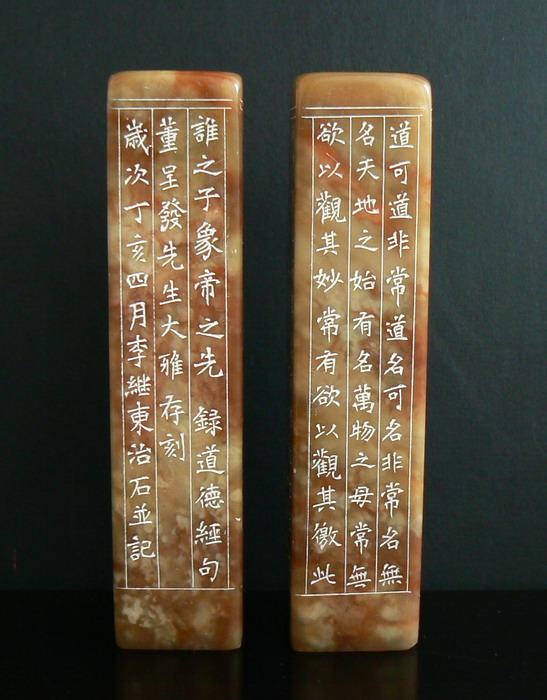 道可道非常道名可名非常名無
名天地之始有名萬物之母常無
欲以觀其妙常有欲以觀其徼此
誰之子象帝之先 録道德經句
董呈發先生大雅存刻
歳次丁亥四月李継東治石並記